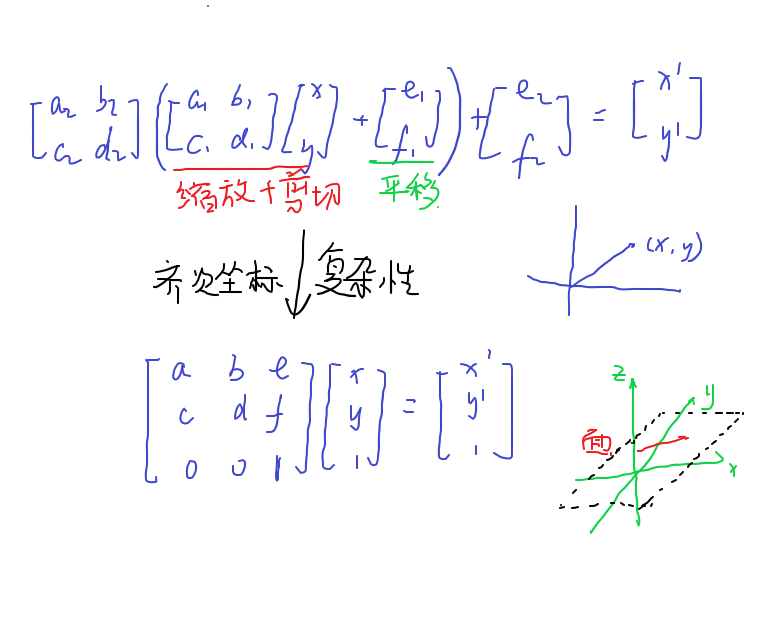 [a₂ b₂
c₂ d₂] ([a₁ b₁
c₁ d₁] [x
y] + [e₁
f₁]) + [e₂
f₂] = [x'
y']
缩放+剪切
平移
(x, y)
齐次坐标 复杂性
[a b e
c d f
0 0 1] [x
y
1] = [x'
y'
1]
z
y
面
x